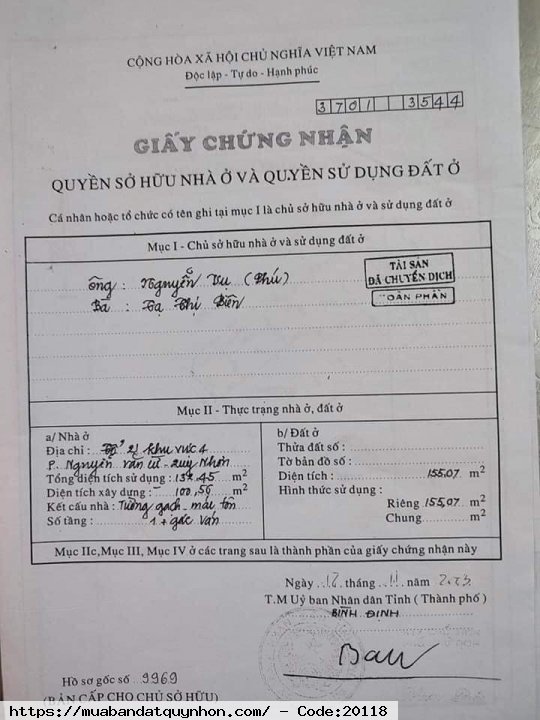 CỘNG HÒA XÃ HỘI CHỦ NGHĨA VIỆT NAM
Độc lập - Tự do - Hạnh phúc
3701 3544
GIẤY CHỨNG NHẬN
QUYỀN SỞ HỮU NHÀ Ở VÀ QUYỀN SỬ DỤNG ĐẤT Ở
Cá nhân hoặc tổ chức có tên ghi tại mục I là chủ sở hữu nhà ở và sử dụng đất ở
Mục I - Chủ sở hữu nhà ở và sử dụng đất ở
Ông : Nguyễn Vu (Phú)
Bà : Tạ Thị Biên
TÀI SẢN
ĐÃ CHUYỂN DỊCH
TOÀN PHẦN
Mục II - Thực trạng nhà ở, đất ở
a/ Nhà ở
Địa chỉ : Tổ 21 khu vực 4
P. Nguyễn Văn Cừ - Quy Nhơn
Tổng diện tích sử dụng : 137,45 m2
Diện tích xây dựng : 100,56 m2
Kết cấu nhà : Tường gạch - mái tôn
Số tầng : 1 + gác ván
b/ Đất ở
Thửa đất số :
Tờ bản đồ số :
Diện tích : 155,07 m2
Hình thức sử dụng :
Riêng 155,07 m2
Chung m2
Mục IIc, Mục III, Mục IV ở các trang sau là thành phần của giấy chứng nhận này
Ngày 12 tháng 11 năm 2003
T.M Uỷ ban Nhân dân Tỉnh ( Thành phố )
BÌNH ĐỊNH
Ban
Hồ sơ gốc số 9969
(BẢN CẤP CHO CHỦ SỞ HỮU)
https://muabandatquynhon.com/ - Code:20118